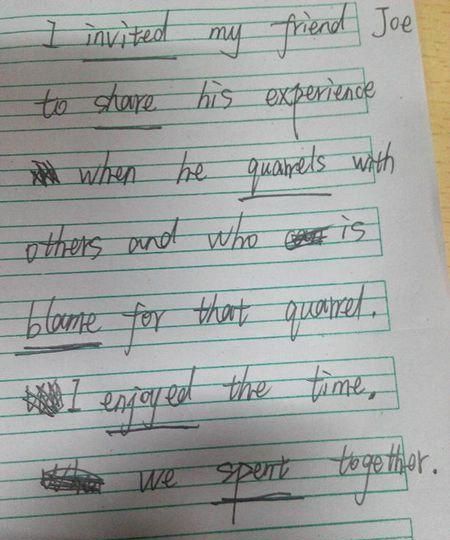 I invited my friend Joe
to share his experience
when he quarrels with
others and who is
blame for that quarrel.
I enjoyed the time.
we spent together.